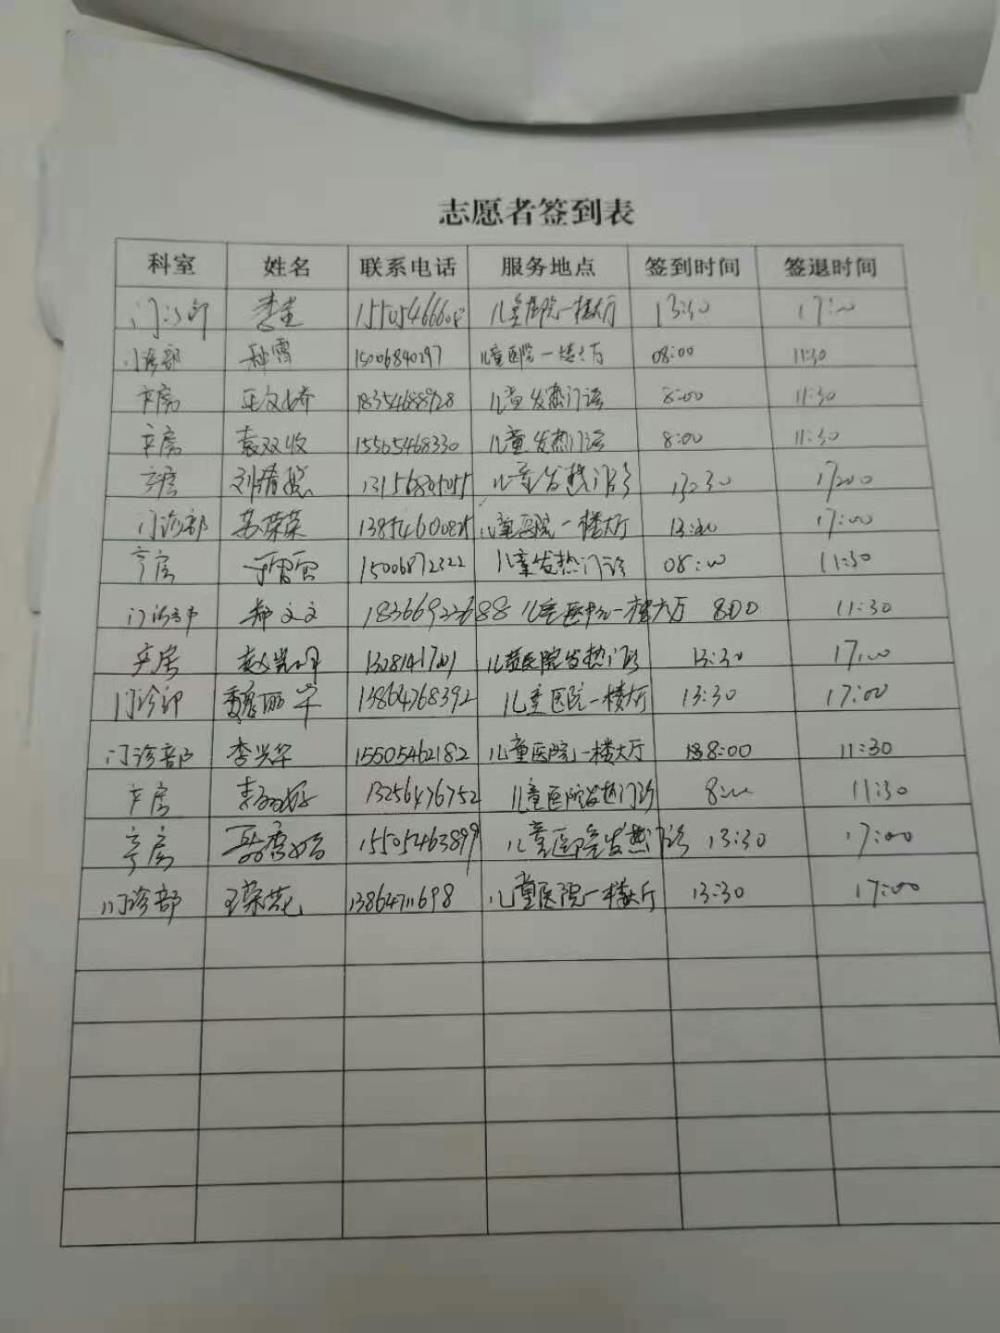 志愿者签到表
科室 姓名 联系电话 服务地点 签到时间 签退时间
门诊部 李 儿童医院一楼大厅 13:30 17:00
门诊部 15006840297 儿童医院一楼大厅 08:00 11:30
产房 18354688928 儿童发热门诊 8:00 11:30
产房 袁双收 15565468330 儿童发热门诊 8:00 11:30
产房 刘倩 儿童发热门诊 13:30 17:00
门诊部 苏荣荣 儿童医院一楼大厅 13:30 17:00
产房 于雷雷 15006872322 儿童发热门诊 08:00 11:30
门诊部 郝文文 18366922688 儿童医院一楼大厅 800 11:30
产房 儿童医院发热门诊 13:30 17:00
门诊部 魏丽华 13864768392 儿童医院一楼大厅 13:30 17:00
门诊部 李兴华 15505462182 儿童医院一楼大厅 8:00 11:30
产房 13256476752 儿童医院发热门诊 8:00 11:30
产房 15505463899 儿童医院发热门诊 13:30 17:00
门诊部 王荣花 13864711698 儿童医院一楼大厅 13:30 17:00